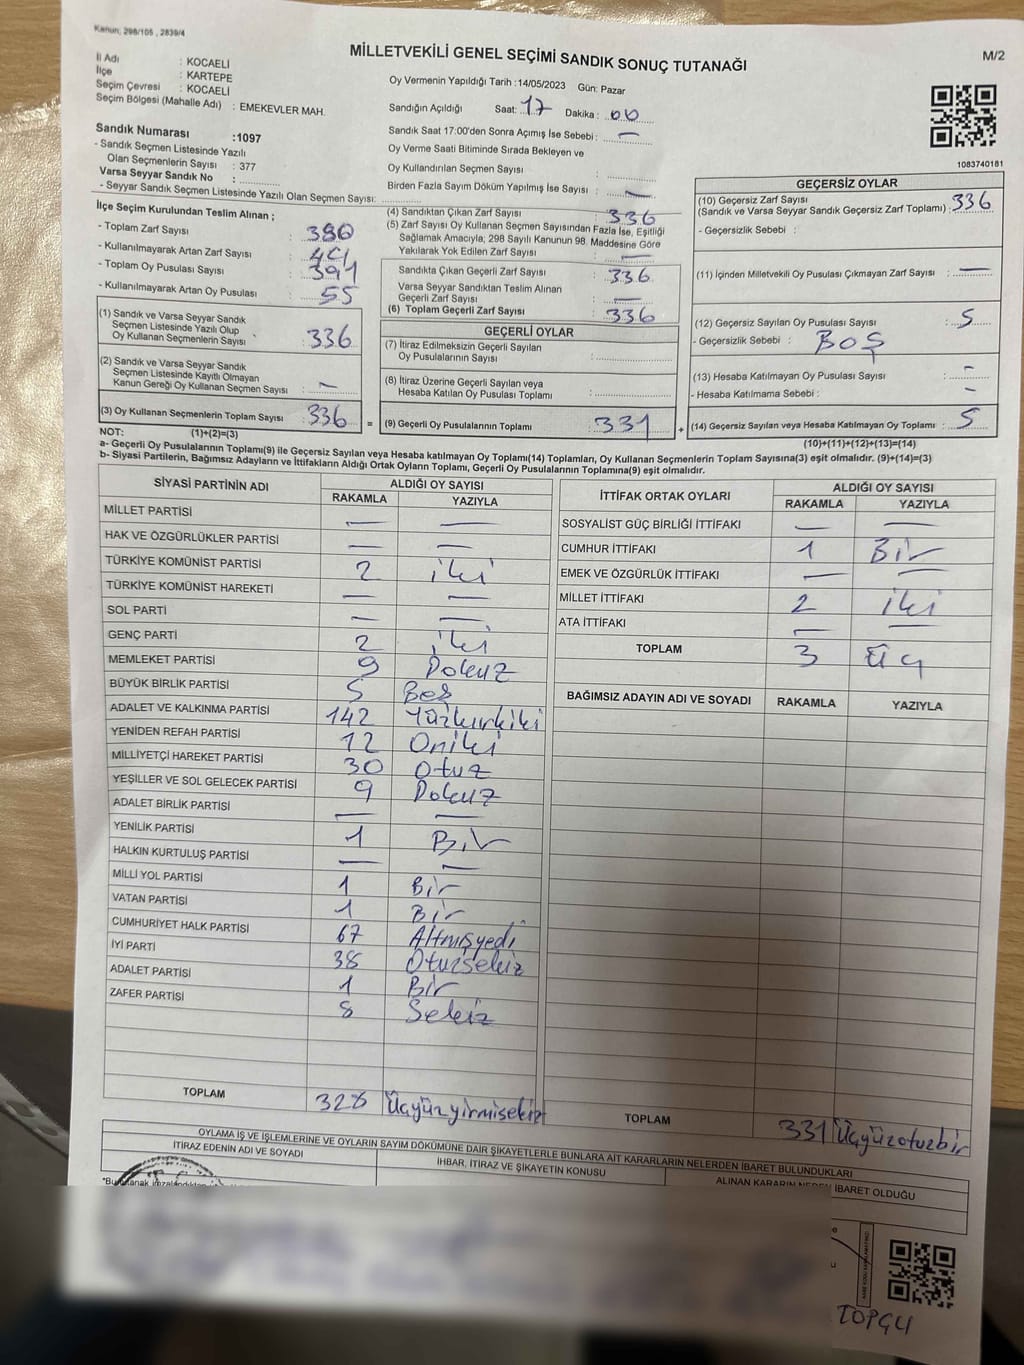 Kanun; 298/105 , 2839/4
MİLLETVEKİLİ GENEL SEÇİMİ SANDIK SONUÇ TUTANAĞI
M/2
İl Adı : KOCAELİ
İlçe : KARTEPE
Seçim Çevresi : KOCAELİ
Seçim Bölgesi (Mahalle Adı) : EMEKEVLER MAH.
Sandık Numarası :1097
- Sandık Seçmen Listesinde Yazılı
Olan Seçmenlerin Sayısı : 377
Varsa Seyyar Sandık No :
- Seyyar Sandık Seçmen Listesinde Yazılı Olan Seçmen Sayısı:
Oy Vermenin Yapıldığı Tarih :14/05/2023 Gün: Pazar
Sandığın Açıldığı Saat: 17 Dakika : 00
Sandık Saat 17:00'den Sonra Açımış İse Sebebi : —
Oy Verme Saati Bitiminde Sırada Bekleyen ve
Oy Kullandırılan Seçmen Sayısı :
Birden Fazla Sayım Döküm Yapılmış İse Sayısı : —
1083740181
İlçe Seçim Kurulundan Teslim Alınan ;
- Toplam Zarf Sayısı : 380
- Kullanılmayarak Artan Zarf Sayısı :
- Toplam Oy Pusulası Sayısı : 391
- Kullanılmayarak Artan Oy Pusulası : 55
(1) Sandık ve Varsa Seyyar Sandık
Seçmen Listesinde Yazılı Olup
Oy Kullanan Seçmenlerin Sayısı : 336
(2) Sandık ve Varsa Seyyar Sandık
Seçmen Listesinde Kayıtlı Olmayan
Kanun Gereği Oy Kullanan Seçmen Sayısı : —
(3) Oy Kullanan Seçmenlerin Toplam Sayısı : 336
(4) Sandıktan Çıkan Zarf Sayısı : 336
(5) Zarf Sayısı Oy Kullanan Seçmen Sayısından Fazla İse, Eşitliği
Sağlamak Amacıyla; 298 Sayılı Kanunun 98. Maddesine Göre
Yakılarak Yok Edilen Zarf Sayısı : —
Sandıkta Çıkan Geçerli Zarf Sayısı : 336
Varsa Seyyar Sandıktan Teslim Alınan
Geçerli Zarf Sayısı : —
(6) Toplam Geçerli Zarf Sayısı : 336
GEÇERLİ OYLAR
(7) İtiraz Edilmeksizin Geçerli Sayılan
Oy Pusulalarının Sayısı :
(8) İtiraz Üzerine Geçerli Sayılan veya
Hesaba Katılan Oy Pusulası Toplamı :
= (9) Geçerli Oy Pusulalarının Toplamı : 331
GEÇERSİZ OYLAR
(10) Geçersiz Zarf Sayısı
(Sandık ve Varsa Seyyar Sandık Geçersiz Zarf Toplamı) : 336
- Geçersizlik Sebebi :
(11) İçinden Milletvekili Oy Pusulası Çıkmayan Zarf Sayısı : —
(12) Geçersiz Sayılan Oy Pusulası Sayısı : 5
- Geçersizlik Sebebi : BOŞ
(13) Hesaba Katılmayan Oy Pusulası Sayısı : -
- Hesaba Katılmama Sebebi : -
+ (14) Geçersiz Sayılan veya Hesaba Katılmayan Oy Toplamı : 5
NOT: (1)+(2)=(3)
(10)+(11)+(12)+(13)=(14)
a- Geçerli Oy Pusulalarının Toplamı(9) ile Geçersiz Sayılan veya Hesaba katılmayan Oy Toplamı(14) Toplamları, Oy Kullanan Seçmenlerin Toplam Sayısına(3) eşit olmalıdır. (9)+(14)=(3)
b- Siyasi Partilerin, Bağımsız Adayların ve İttifakların Aldığı Ortak Oyların Toplamı, Geçerli Oy Pusulalarının Toplamına(9) eşit olmalıdır.
SİYASİ PARTİNİN ADI ALDIĞI OY SAYISI
RAKAMLA YAZIYLA
MİLLET PARTİSİ — —
HAK VE ÖZGÜRLÜKLER PARTİSİ — —
TÜRKİYE KOMÜNİST PARTİSİ 2 iki
TÜRKİYE KOMÜNİST HAREKETİ — —
SOL PARTİ — —
GENÇ PARTİ 2 iki
MEMLEKET PARTİSİ 9 Dokuz
BÜYÜK BİRLİK PARTİSİ 5 Beş
ADALET VE KALKINMA PARTİSİ 142 Yüzkırkiki
YENİDEN REFAH PARTİSİ 12 Oniki
MİLLİYETÇİ HAREKET PARTİSİ 30 Otuz
YEŞİLLER VE SOL GELECEK PARTİSİ 9 Dokuz
ADALET BİRLİK PARTİSİ — —
YENİLİK PARTİSİ 1 Bir
HALKIN KURTULUŞ PARTİSİ — —
MİLLİ YOL PARTİSİ 1 Bir
VATAN PARTİSİ 1 Bir
CUMHURİYET HALK PARTİSİ 67 Altmışyedi
İYİ PARTİ 38 Otuzsekiz
ADALET PARTİSİ 1 Bir
ZAFER PARTİSİ 8 Sekiz
TOPLAM 328 Üçyüzyirmisekiz
İTTİFAK ORTAK OYLARI ALDIĞI OY SAYISI
RAKAMLA YAZIYLA
SOSYALİST GÜÇ BİRLİĞİ İTTİFAKI — —
CUMHUR İTTİFAKI 1 Bir
EMEK VE ÖZGÜRLÜK İTTİFAKI — —
MİLLET İTTİFAKI 2 iki
ATA İTTİFAKI — —
TOPLAM 3 Üç
BAĞIMSIZ ADAYIN ADI VE SOYADI RAKAMLA YAZIYLA
TOPLAM 331 Üçyüzotuzbir
OYLAMA İŞ VE İŞLEMLERİNE VE OYLARIN SAYIM DÖKÜMÜNE DAİR ŞİKAYETLERLE BUNLARA AİT KARARLARIN NELERDEN İBARET BULUNDUKLARI
İTİRAZ EDENİN ADI VE SOYADI
İHBAR, İTİRAZ VE ŞİKAYETİN KONUSU
ALINAN KARARIN NEDEN İBARET OLDUĞU